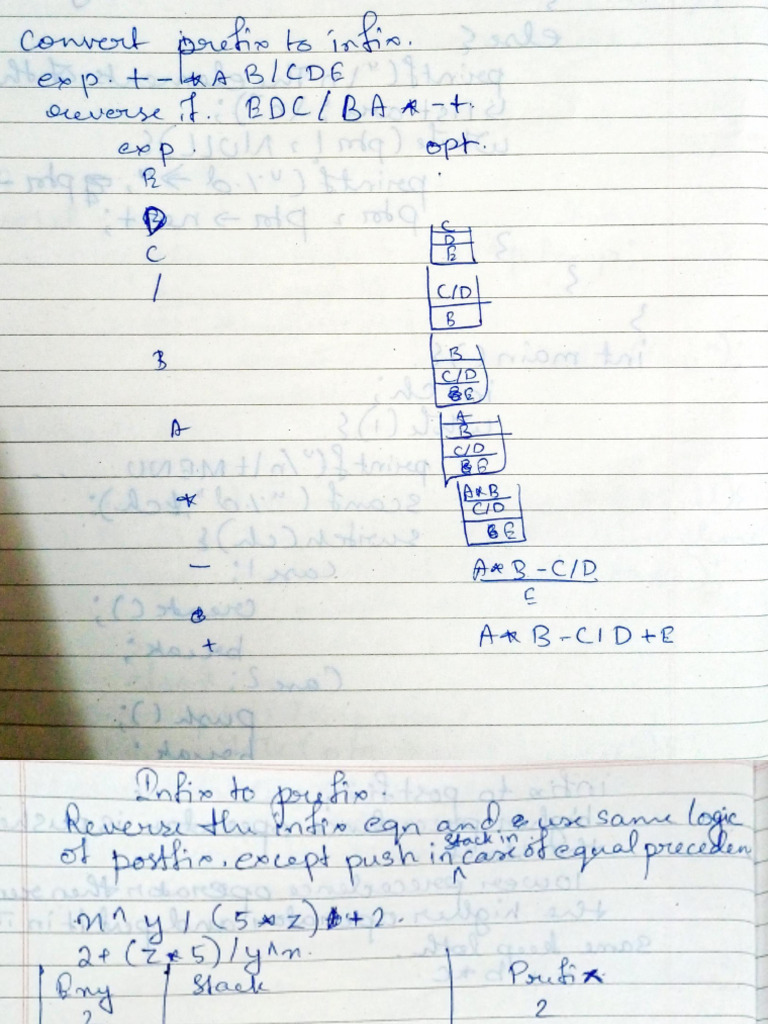 Convert prefix to infix.
exp. + - * A B / C D E
reverse it. E D C / B A * - +.
exp. opt.
E
D
C
C
D
E
/
C/D
B
B
B
C/D
E
A
A
B
C/D
E
*
A*B
C/D
E
-
A * B - C/D
E
+
A * B - C/D + E
Infix to prefix.
Reverse the infix eqn and use same logic
of postfix. except push in stack in case of equal preceden
x^ y / (5 * z) + 2.
2 + (z * 5) / y^x.
Eny Stack Prefix
2 2